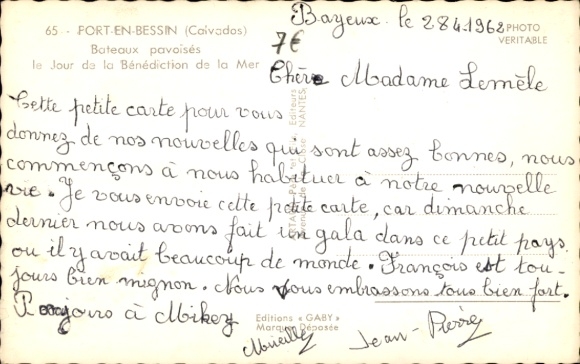 65 - PORT-EN-BESSIN (Calvados)
Bateaux pavoisés
le Jour de la Bénédiction de la Mer
Bayeux. le 28 4 1962
PHOTO
VERITABLE
7€
Chère Madame Lemèle
Cette petite carte pour vous
donnez de nos nouvelles qui sont assez bonnes, nous
commençons à nous habituer à notre nouvelle
vie. Je vous envoie cette petite carte, car dimanche
dernier nous avons fait un gala dans ce petit pays
ou il y avait beaucoup de monde. François est tou-
jours bien mignon. Nous vous embrassons tous bien fort.
à Mikey
Editions « GABY »
Marque Déposée
Mireille
Jean-Pierre
Editeurs
NANTES